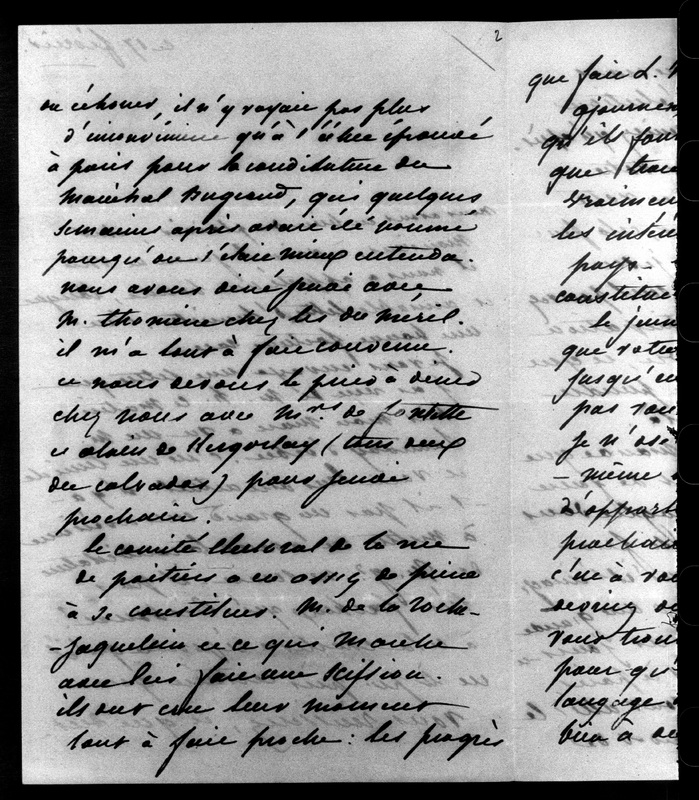 2
ou échouer, il n'y voyait pas plus
d'inconvénient qu'à s'être épousé
à paris pour la candidature du
Maréchal Bugeaud, qui quelques
semaines après avait été nommé
parcequ'on s'était mieux entendu.
nous avons diné jeudi avec
M. thomine chez les du méril.
il m'a tout à fait convenu.
et nous devons le prier à diner
chez nous avec Mrs de fontette
et alain de Kergorlay (tous deux
du calvados) pour jeudi
prochain.
le comité électoral de la rue
de poitiers a eu assez de peine
à se constituer. M. de la roche-
-jaquelein et ce qui marche
avec lui fait une scission.
ils ont cru leur moment
tout à fait proche : les progrès
que fait L.
ajourne
qu'il fau
que trou
vraimen
les intér
pays
constitue
le jeun
que votre
jusqu'en
pas vou
je n'ose
-même
d'appart
prochain
c'est à vou
devriez
vous trou
pour qu'
langage
bien à